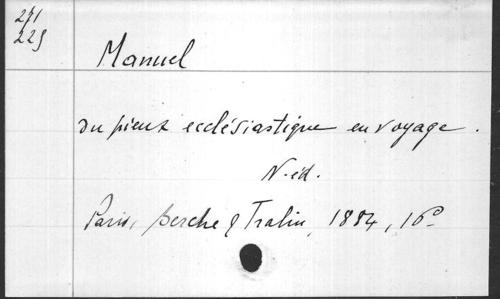 271
225
Manuel
du pieux ecclésiastique en voyage.
N. éd.
Paris, Berche & Tralin, 1884, 16°